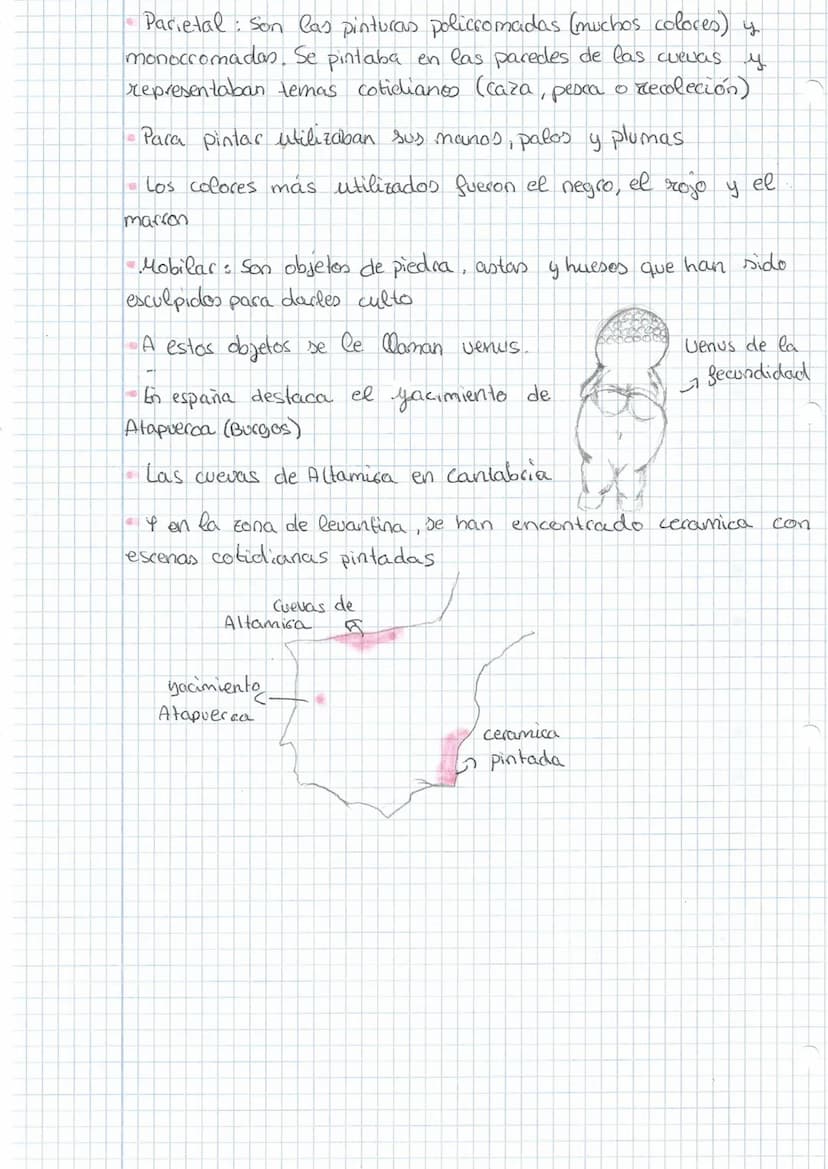 • Parietal : Son las pinturas policromadas (muchos colores) y
monocromadas. Se pintaba en las paredes de las cuevas y
representaban temas cotidianos (caza, pesca o recoleción)
• Para pintar utilizaban sus manos, palos y plumas
• Los colores más utilizados fueron el negro, el rojo y el
marron
• Mobilar : Son objetos de piedra, astas y huesos que han sido
esculpidos para darles culto
• A estos objetos se le llaman venus.
Venus de la
fecundidad
• En españa destaca el yacimiento de
Atapuerca (Burgos)
• Las cuevas de Altamira en Cantabria
• Y en la zona de levantina, se han encontrado ceramica con
escenas cotidianas pintadas
Cuevas de
Altamira
yacimiento
Atapuerca
ceramica
pintada